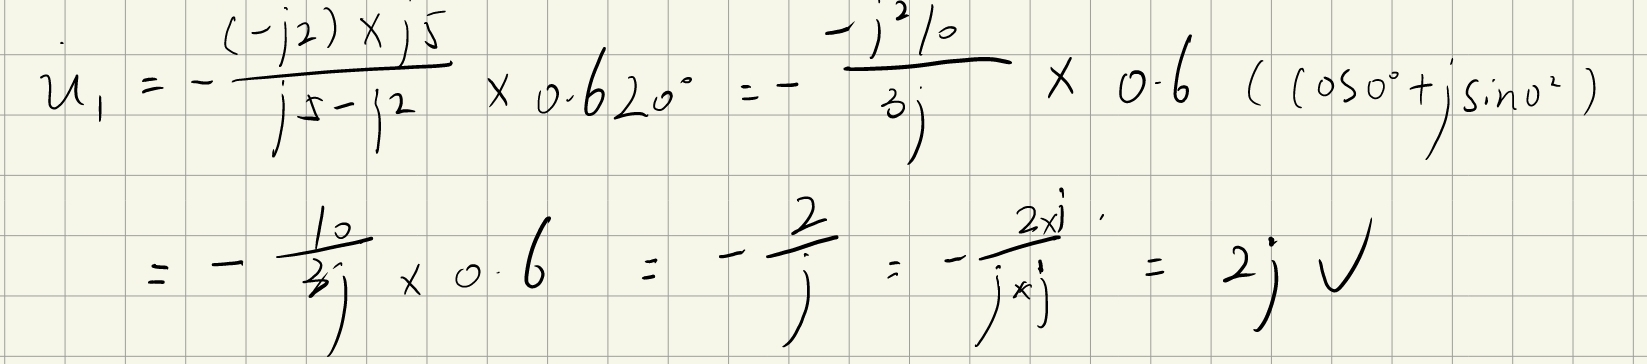 u̇₁ = - \frac{(-j2) × j5}{j5 - j2} × 0.6∠0° = - \frac{-j²10}{3j} × 0.6 (cos0° + jsin0²)
= - \frac{10}{3j} × 0.6 = - \frac{2}{j} = - \frac{2×j}{j×j} = 2j ✓